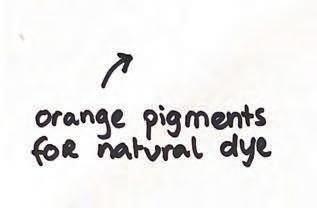 orange pigments
for natural dye